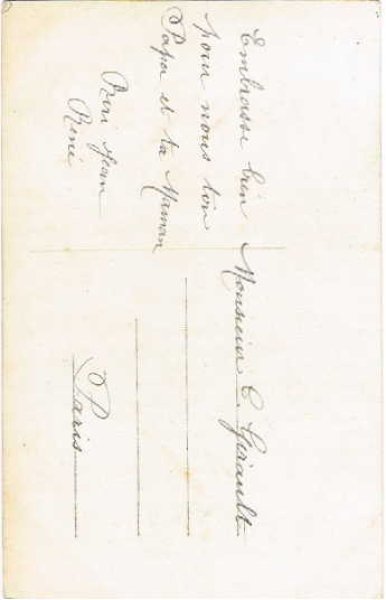 Embrasse bien
pour nous ton
Papa et ta Maman
Jean
René
Monsieur C. Girault
Paris